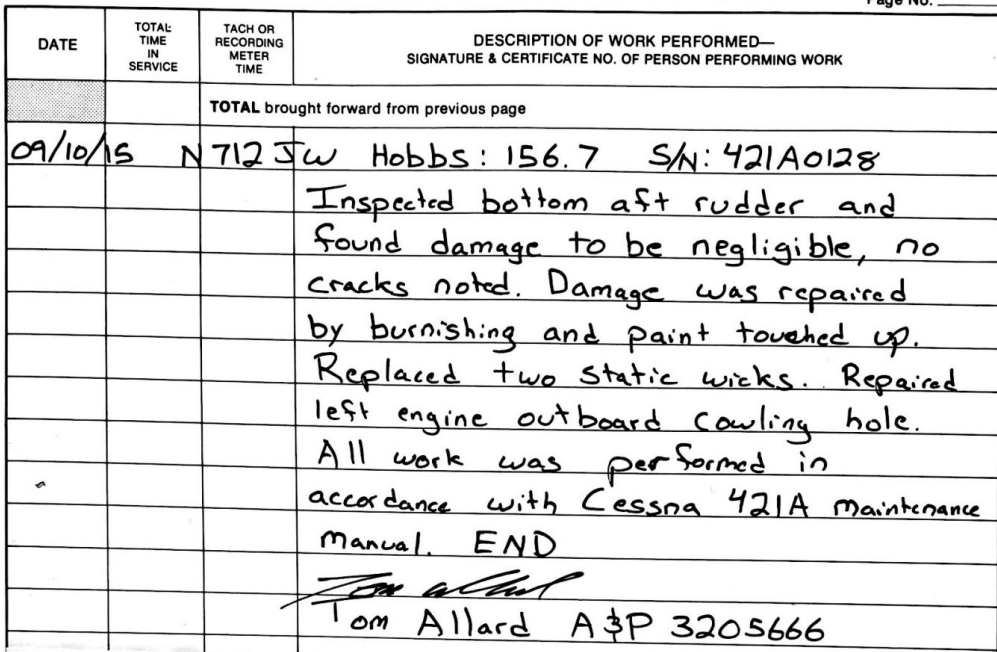 Page No.
DATE
TOTAL TIME IN SERVICE
TACH OR RECORDING METER TIME
DESCRIPTION OF WORK PERFORMED—
SIGNATURE & CERTIFICATE NO. OF PERSON PERFORMING WORK
TOTAL brought forward from previous page
09/10/15 N712JW Hobbs: 156.7 S/N: 421A0128
Inspected bottom aft rudder and
found damage to be negligible, no
cracks noted. Damage was repaired
by burnishing and paint touched up.
Replaced two static wicks. Repaired
left engine outboard cowling hole.
All work was performed in
accordance with Cessna 421A maintenance
manual. END
Tom Allard
Tom Allard A&P 3205666